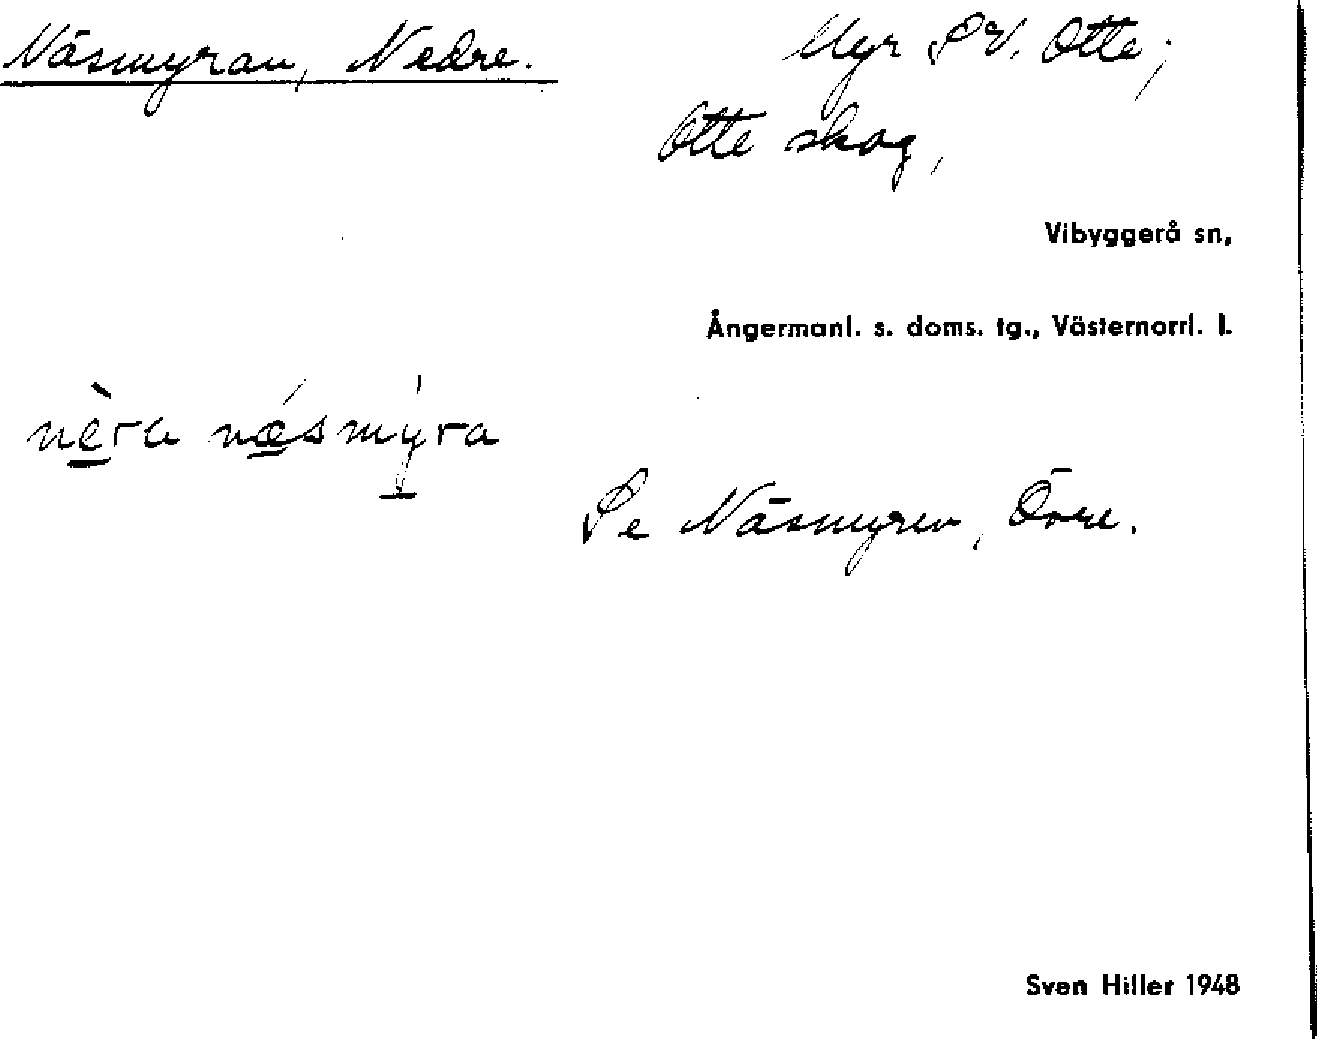 Näsmyran, Nedre.
Myr SV. Otte;
Otte skog,
Vibyggerå sn,
Ångermanl. s. doms. tg., Västernorrl. l.
nèra næ´smy̍ra
Se Näsmyren, Övre.
Sven Hiller 1948